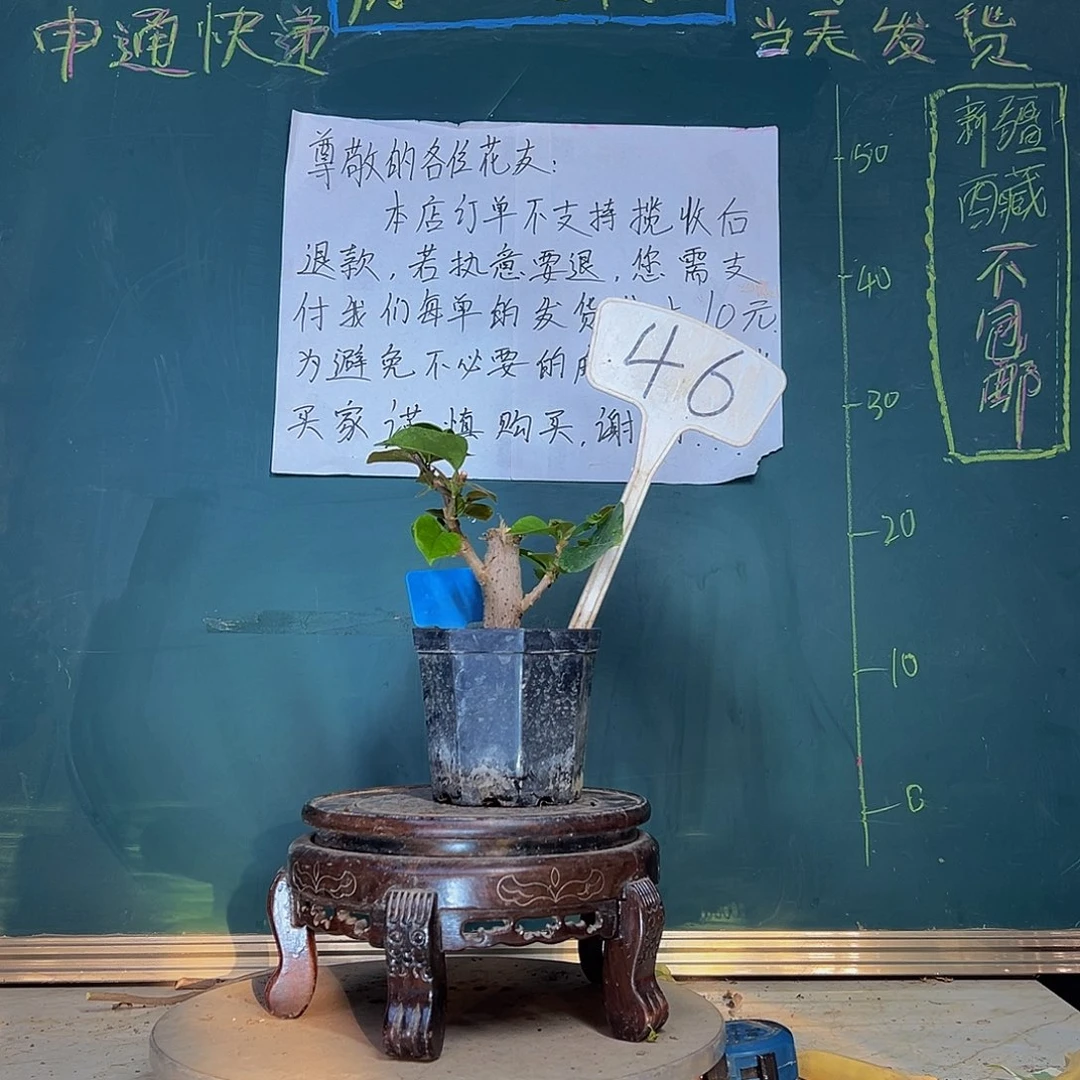 申通快递
当天发货
尊敬的各位花友：
本店订单不支持揽收后
退款，若执意要退，您需支
付我们每单的发货 10元.
为避免不必要的
买家谨慎购买，谢
46
50
40
30
20
10
0
新疆
西藏
不
包
邮